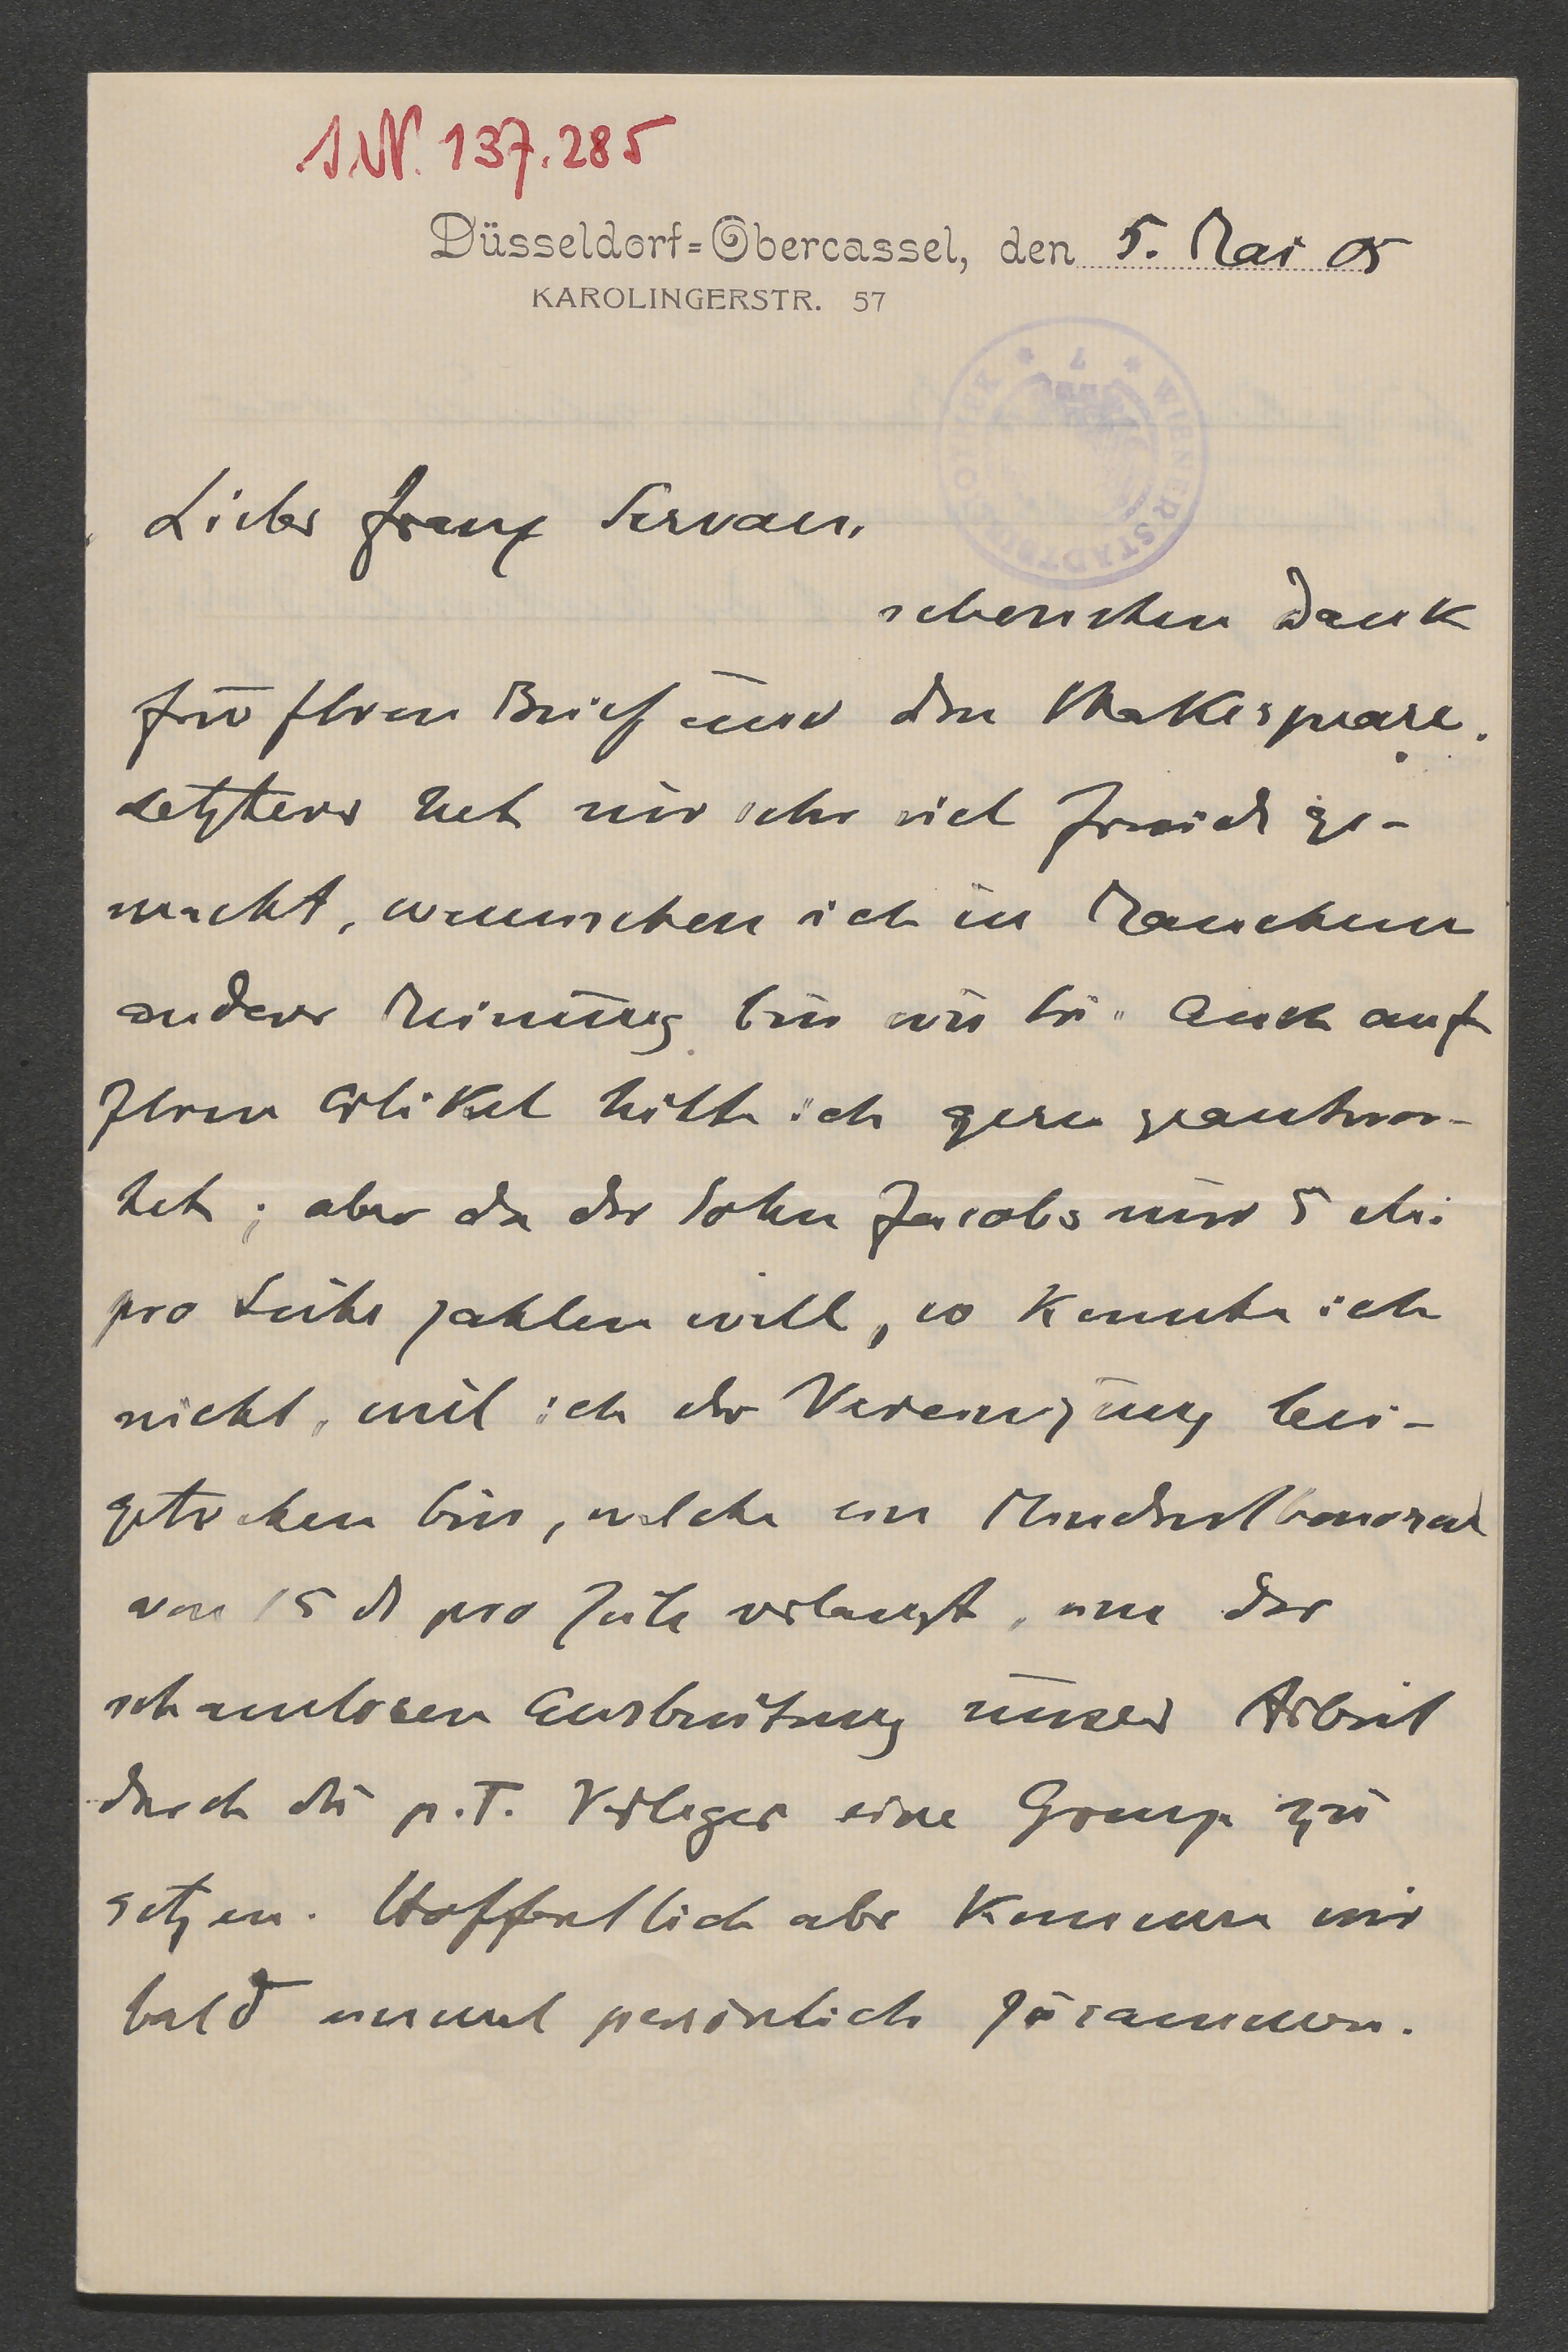 I.N. 137.285
Düsseldorf=Obercassel, den 5. Mai 05
KAROLINGERSTR. 57
WIENER STADTBIBLIOTHEK
Lieber Franz Servaes,
schönsten Dank
für Ihren Brief und den Shakespeare.
Letzterer hat mir sehr viel Freude ge-
macht, wennschon ich in Manchem
anderer Meinung bin wie Sie. Auch auf
Ihren Artikel hätte ich gern geantwor-
tet; aber da der Sohn Jacobs nur 5 M
pro Seite zahlen will, so konnte ich
nicht, weil ich der Vereinigung bei-
getreten bin, welche ein Mindesthonorar
von 15 M pro Seite verlangt, um der
schamlosen Ausbeutung unserer Arbeit
durch die p.T. Verleger eine Grenze zu
setzen. Hoffentlich aber kommen wir
bald einmal persönlich zusammen.